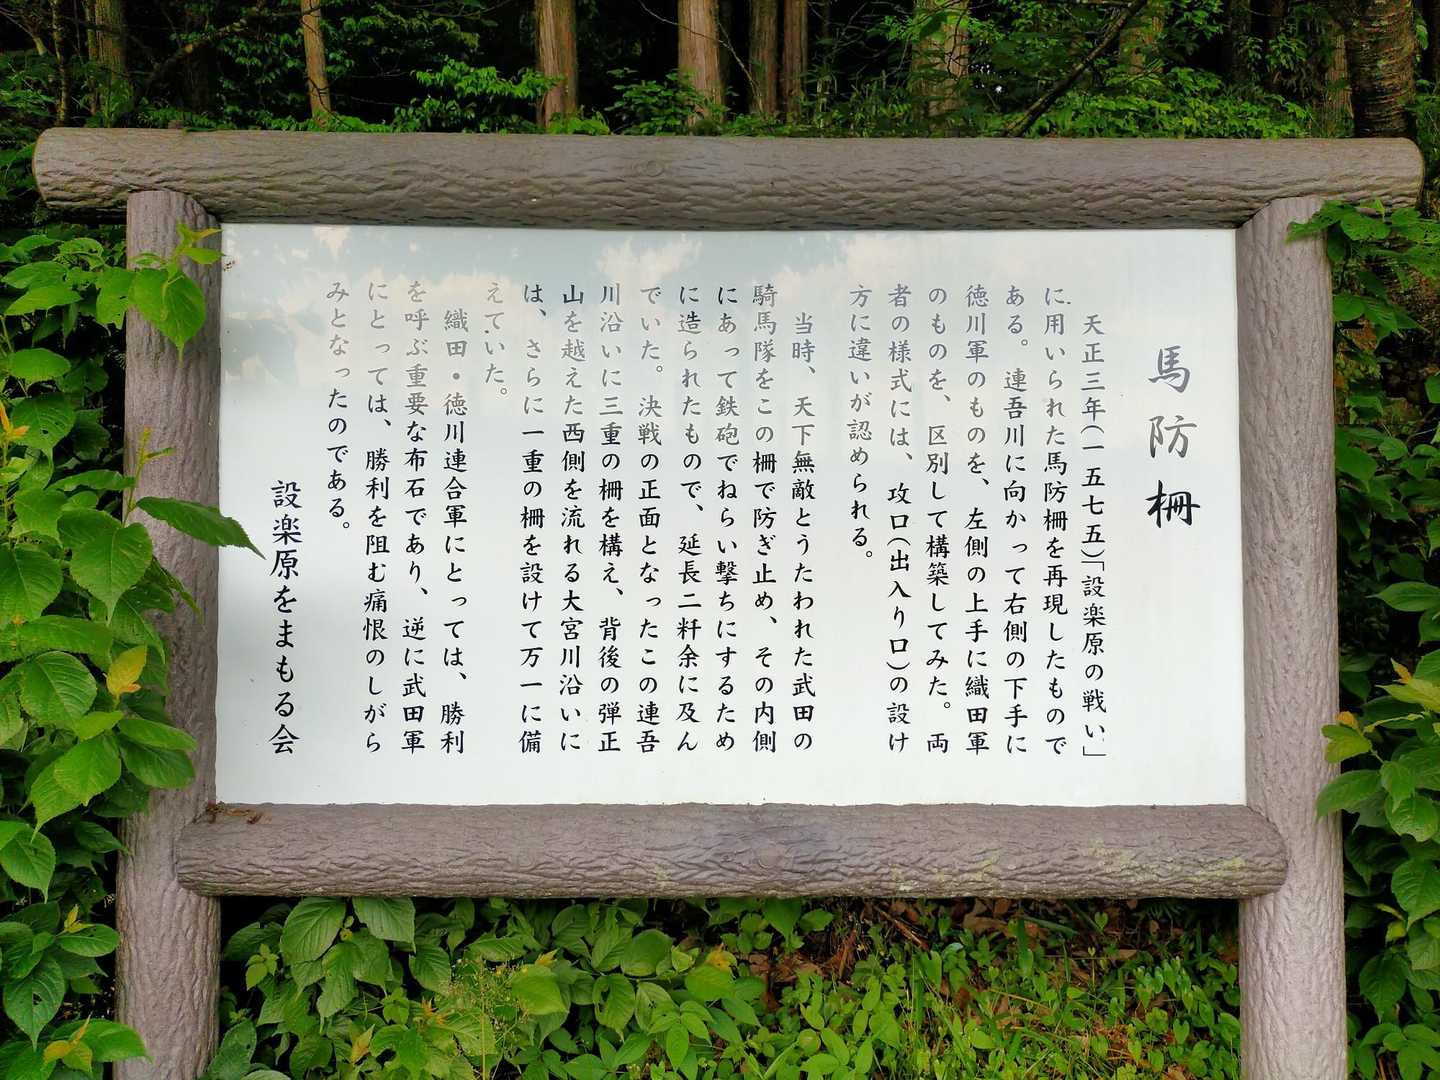 馬防柵
天正三年(一五七五)「設楽原の戦い」
に用いられた馬防柵を再現したもので
ある。連吾川に向かって右側の下手に
徳川軍のものを、左側の上手に織田軍
のものを、区別して構築してみた。両
者の様式には、攻口(出入り口)の設け
方に違いが認められる。
当時、天下無敵とうたわれた武田の
騎馬隊をこの柵で防ぎ止め、その内側
にあって鉄砲でねらい撃ちにするため
に造られたもので、延長二粁余に及ん
でいた。決戦の正面となったこの連吾
川沿いに三重の柵を構え、背後の弾正
山を越えた西側を流れる大宮川沿いに
は、さらに一重の柵を設けて万一に備
えていた。
織田・徳川連合軍にとっては、勝利
を呼ぶ重要な布石であり、逆に武田軍
にとっては、勝利を阻む痛恨のしがら
みとなったのである。
設楽原をまもる会